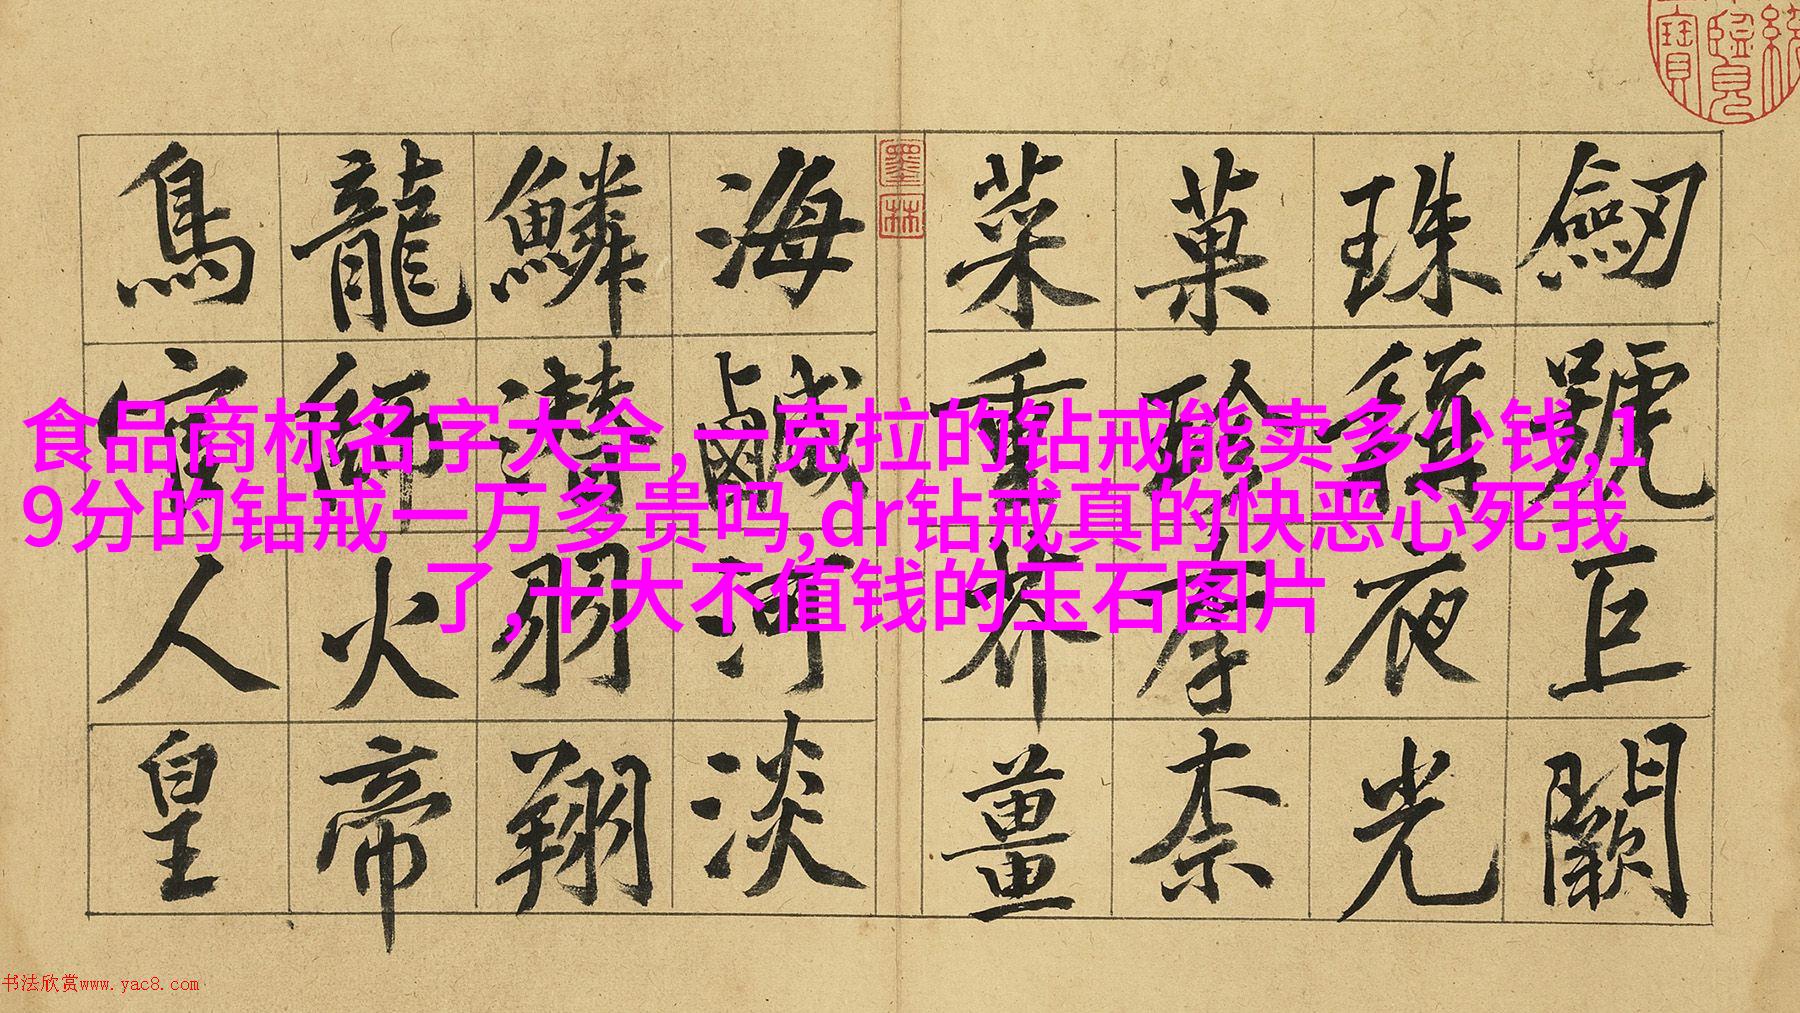 劒號巨闕
珠稱夜光
菓珍李柰
菜重芥薑
墨林
海鹹河淡
鱗潛羽翔
龍師火帝
鳥官人皇
食品商标名字大全,一克拉的钻戒能卖多少钱,1
9分的钻戒一万多贵吗,dr钻戒真的快恶心死我
了,十大不值钱的玉石图片
书法欣赏www.yac8.com